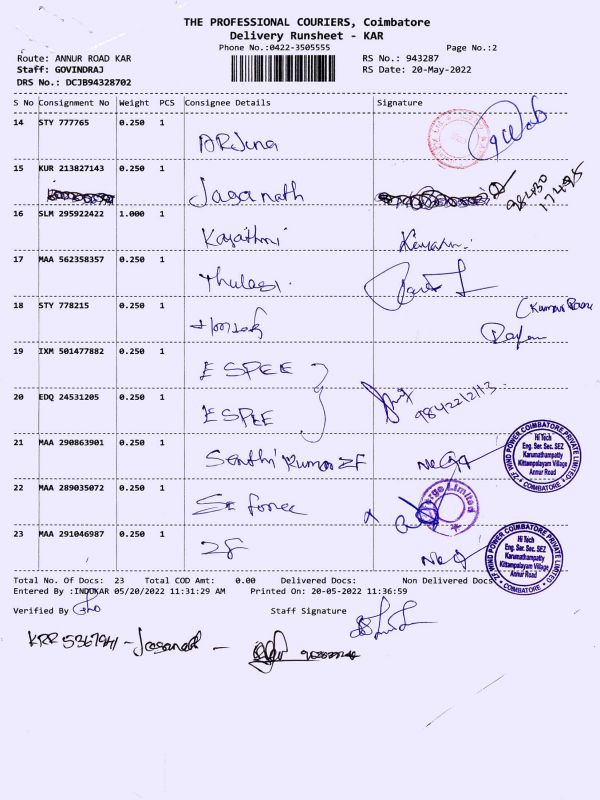 THE PROFESSIONAL COURIERS, Coimbatore
Delivery Runsheet - KAR
Phone No.:0422-3505555 Page No.:2
Route: ANNUR ROAD KAR RS No.: 943287
Staff: GOVINDRAJ RS Date: 20-May-2022
DRS No.: DCJB94328702
S No Consignment No Weight PCS Consignee Details Signature
14 STY 777765 0.250 1 ARJuna
15 KUR 213827143 0.250 1 Jaganath
16 SLM 295922422 1.000 1 Kayathri
17 MAA 562358357 0.250 1 Thulasi
18 STY 778215 0.250 1
19 IXM 501477882 0.250 1 ESPEE
20 EDQ 24531205 0.250 1 ESPEE
21 MAA 290863901 0.250 1 Senthil Kumar ZF
22 MAA 289035072 0.250 1
23 MAA 291046987 0.250 1 ZF
ZF WIND POWER COIMBATORE PRIVATE LIMITED
Hi Tech
Eng. Ser. Sec. SEZ
Karumathampatty
Kittampalayam Village
Annur Road
COIMBATORE
Cargo Limited
ZF WIND POWER COIMBATORE PRIVATE LIMITED
Hi Tech
Eng. Ser. Sec. SEZ
Karumathampatty
Kittampalayam Village
Annur Road
COIMBATORE
Total No. Of Docs: 23 Total COD Amt: 0.00 Delivered Docs: Non Delivered Docs
Entered By :INDUKAR 05/20/2022 11:31:29 AM Printed On: 20-05-2022 11:36:59
Verified By Staff Signature